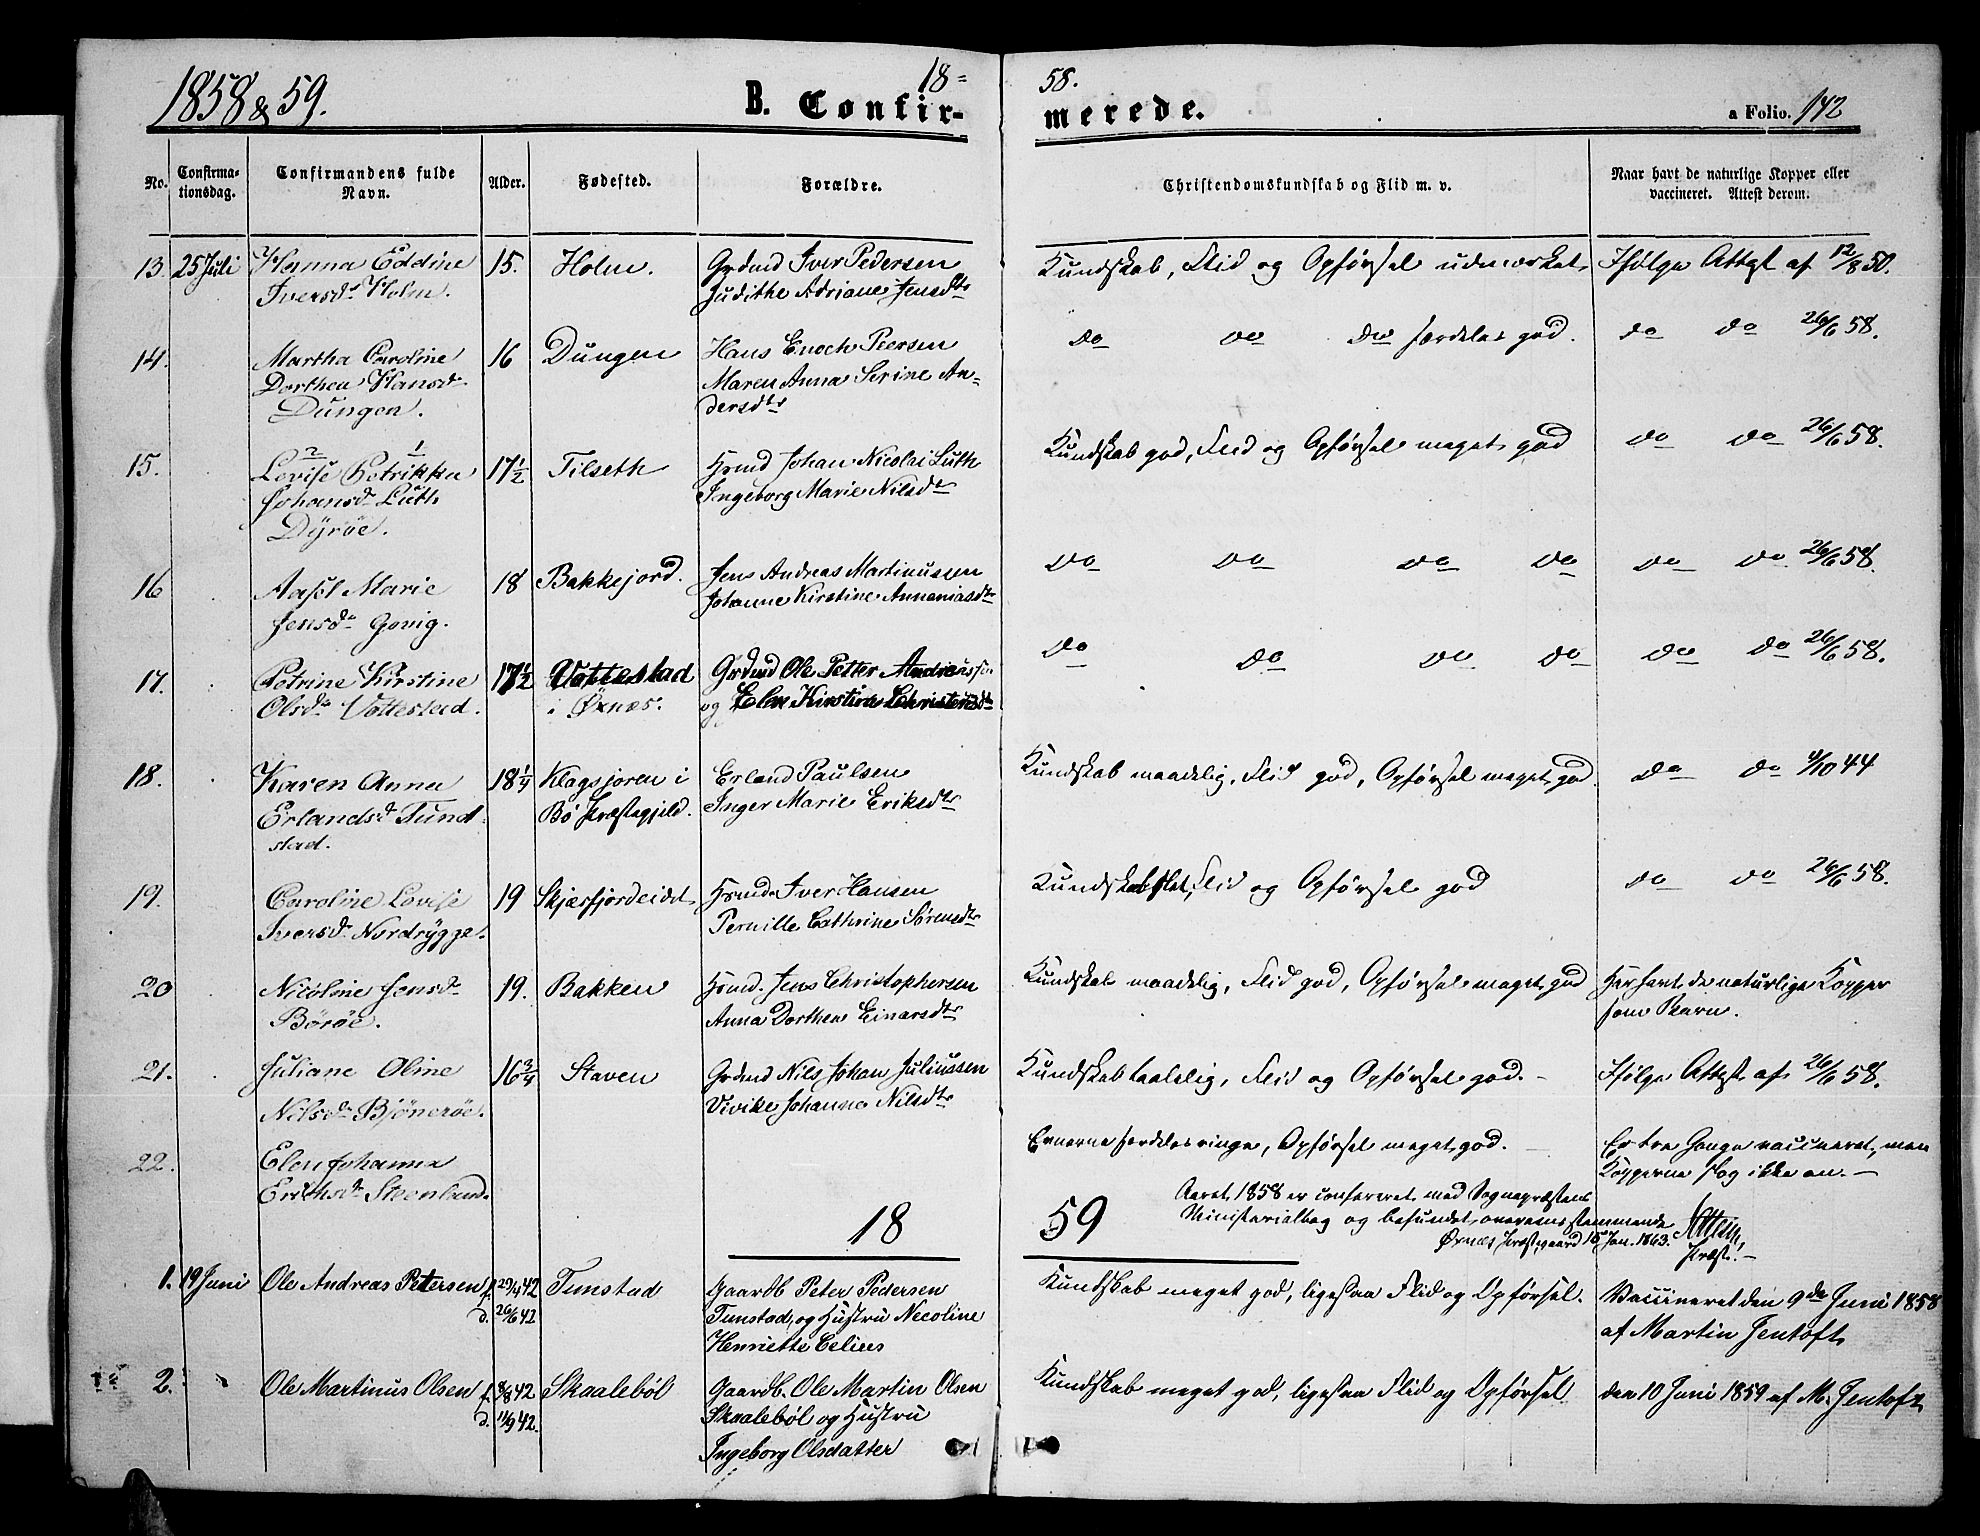 1858 & 59.
18=
58.
B. Confir-
merede.
a Folio. 142
No.
Confirma-
tionsdag.
Confirmandens fulde
Navn.
Alder.
Fødested.
Forældre.
Christendomskundskab og Flid m. v.
Naar havt de naturlige Kopper eller
vaccineret. Attest derom.
13. 25 Juli Hanna Eddine 15. Holm. Grdmd Iver Pedersen Kundskab, Flid og Opførsel udmærket Ifølge Attest af 12/8 50.
Iversdr Holm. Judithe Adriane Jensdtr
14. Martha Caroline 16 Dungen Hans Enoch Peersen do do do særdeles god. do do 26/6 58.
Dorthea Hansdr Maren Anna Serine An-
Dungen. dersdtr
15. Lovise Petrikka 17½ Tilseth Hsmd Johan Nicolai Luth Kundskab god, Flid og Opførsel meget god do do 26/6 58.
Johansdr Luth Ingeborg Marie Nilsdtr
Dyrøe.
16 Aasel Marie 18 Bakkejord. Jens Andreas Martinussen do do do do do do 26/6 58.
Jensdr Govig. Johanne Kirstine Annaniasdtr
17. Petrine Kirstine 17½ Vottestad Grdmd Ole Petter Andreassen do do do do do do 26/6 58.
Olsdr Vottestad. i Øxnæs. og Elen Kirstine Christensdtr
18. Karen Anna 18¼ Klagsjoren i Erland Paulsen Kundskab maadelig, Flid god, Opførsel meget god do do 4/10 44
Erlandsdr Tund- Bø Præstegjeld. Inger Marie Eriksdtr
stad.
19. Caroline Lovise 19 Skjærfjordeidet Hsmd Iver Hansen Kundskab slet, Flid og Opførsel god do do 26/6 58.
Iversdr Nordrygge. Pernille Cathrine Sørensdtr
20 Nicoline Jensdr 19. Bakken Hsmd. Jens Christophersen Kundskab maadelig, Flid god, Opførsel meget god Har havt de naturlige Kopper
Børøe. Anna Dorthea Einarsdtr som Barn.
21. Juliane Oline 16¾ Staven Grdmd Nils Johan Juliussen Kundskab taalelig, Flid og Opførsel god. – Ifølge Attest af 26/6 58.
Nilsdr Bjønerøe. Vivike Johanna Nilsdtr
22. Elen Johanna Evnerne særdeles ringe, Opførsel meget god. – Er tre Gange vaccineret, men
Erichsdr Steenland. Kopperne slog ikke an. –
Aaret 1858 er confereret med Sognepræstens
Ministerialbog og befundet overensstemmende
Øxnæs Præstegaard 15 Jan. 1863.
Præst. –
18
59
1. 19 Juni Ole Andreas Petersen f. 29/4 42 Tunstad Gaardb Peter Pedersen Kundskab meget god, ligesaa Flid og Opførsel. Vaccineret den 9de Juni 1858
d. 26/6 42 Tunstad, og Hustru Necoline af Martin Jentoft
Henriette Celius
2. Ole Martinus Olsen f. 8/8 42 Skaalebøl Gaardb. Ole Martin Olsen Kundskab meget god, ligesaa Flid og Opførsel den 10 Juni 1859 af M. Jentoft
d. 11/9 42. Skaalebøl og Hustru
Ingeborg Olsdatter